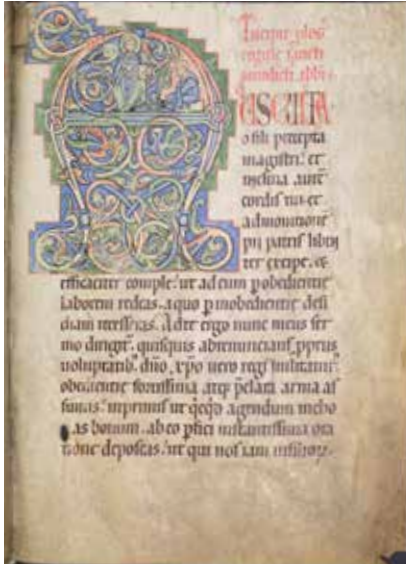 Incipit
regule sancti
benedicti abb
USCULTA
o fili precepta
magistri. et
inclina aurē
cordis tui et
admonitionē
pii patris libēn
ter excipe. et
efficaciter comple. ut ad eum p obedientie
laborem redeas. a quo p inobedientie desi
diam recesseras. Ad te ergo nunc meus ser
mo dirigit. quisquis abrenuncians pprus
voluptatib. dn̄o xp̄o vero regi militatur.
obedientie fortissima atq; pclara arma as
sumis. inprimis ut qcqd agendum incho
as bonum. ab eo pfici instantissima ora
tione deposcas. ut qui nos iam